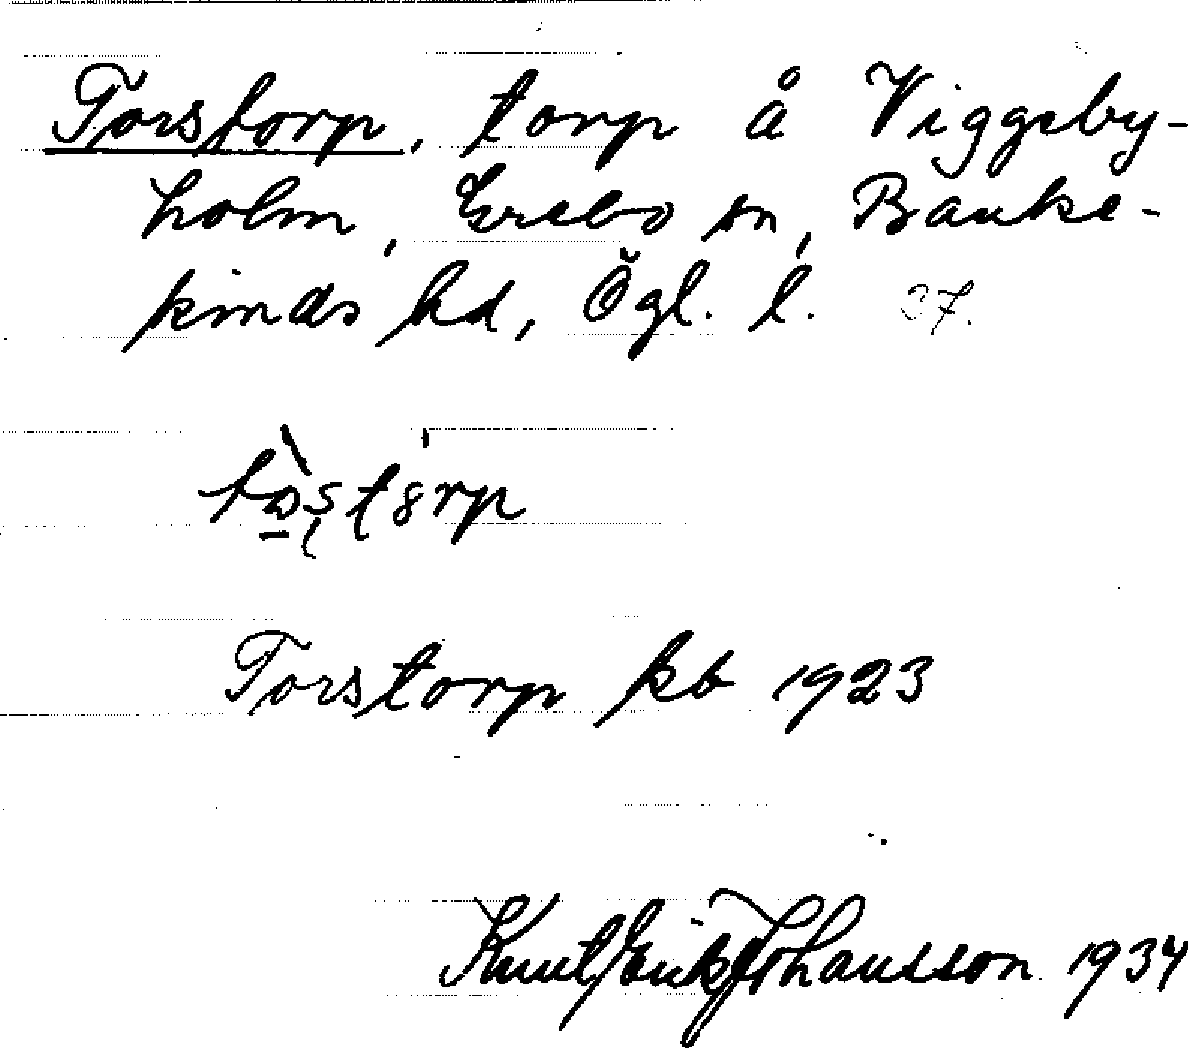 Torstorp, torp å Viggeby-
holm, Grebo sn, Banke-
kinds hd, Ögl. l. 37.
Torstorp kb 1923
Knut Erik Johansson 1934